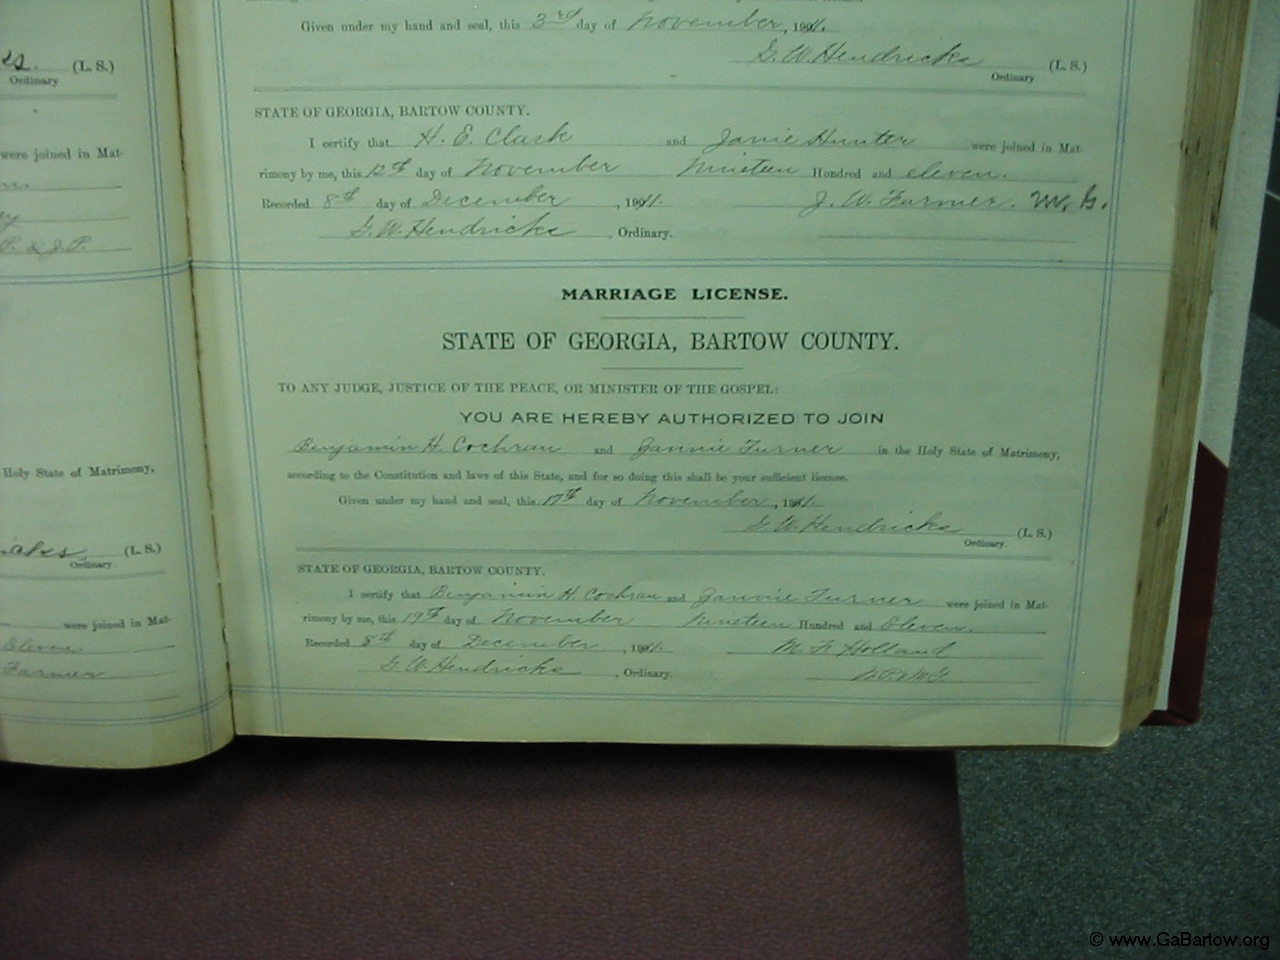 Given under my hand and seal, this 3rd day of November, 1911.
G. W. Hendricks (L. S.)
Ordinary
STATE OF GEORGIA, BARTOW COUNTY.
I certify that H. E. Clark and Janie Hunter were joined in Mat-
rimony by me, this 12th day of November Nineteen Hundred and eleven.
Recorded 8th day of December, 1911. J. W. Farmer. M. G.
G. W. Hendricks, Ordinary.
MARRIAGE LICENSE.
STATE OF GEORGIA, BARTOW COUNTY.
TO ANY JUDGE, JUSTICE OF THE PEACE, OR MINISTER OF THE GOSPEL:
YOU ARE HEREBY AUTHORIZED TO JOIN
Benjamin H. Cochran and Fannie Turner in the Holy State of Matrimony,
according to the Constitution and laws of this State, and for so doing this shall be your sufficient license.
Given under my hand and seal, this 17th day of November, 1911.
G. W. Hendricks (L. S.)
Ordinary
STATE OF GEORGIA, BARTOW COUNTY.
I certify that Benjamin H. Cochran and Fannie Turner were joined in Mat-
rimony by me, this 19th day of November Nineteen Hundred and Eleven.
Recorded 8th day of December, 1911. M. F. Holland
G. W. Hendricks, Ordinary.
(L. S.)
Ordinary
were joined in Mat-
P. & J. P.
Holy State of Matrimony,
(L. S.)
Ordinary
were joined in Mat-
Eleven
Farmer
© www.GaBartow.org